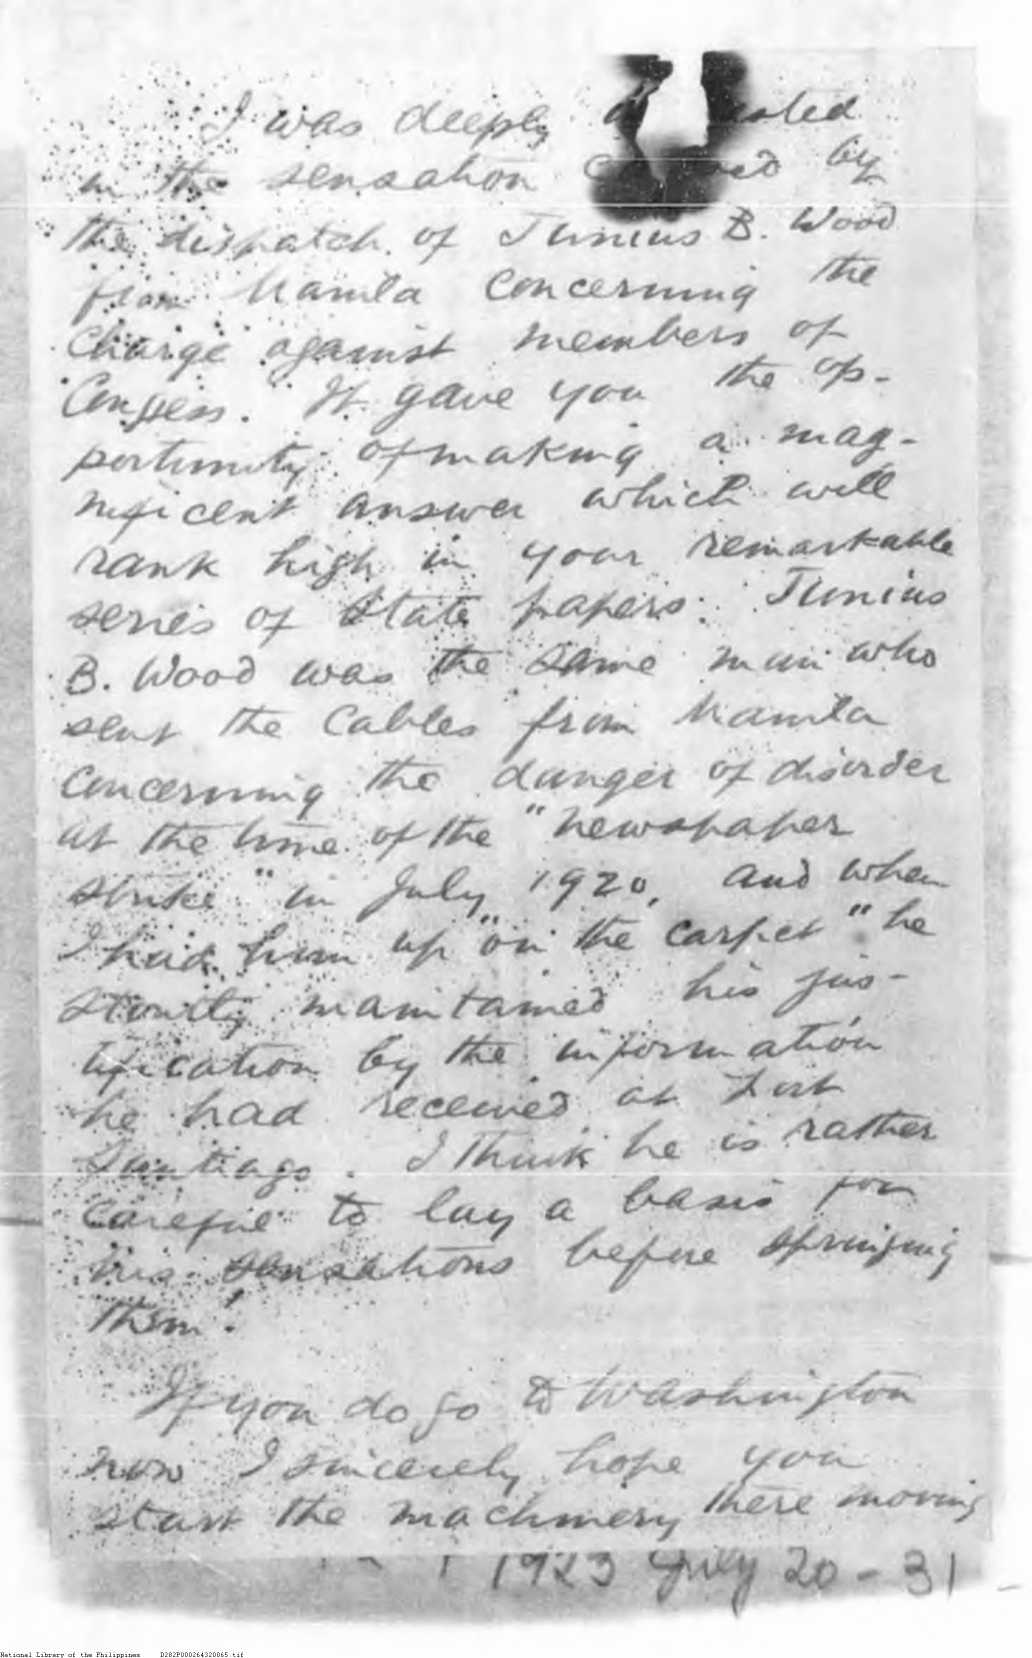 I was deeply
in the sensation by
the dispatch of Junius B. Wood
from Manila concerning the
charge against members of
Congress. It gave you the op-
portunity of making a mag-
nificent answer which will
rank high in your remarkable
series of State papers. Junius
B. Wood was the same man who
sent the cables from Manila
concerning the danger of disorder
at the time of the "newspaper
strike" in July, 1920, and when
I had him up "on the carpet" he
stoutly maintained his jus-
tification by the information
he had received at Fort
Santiago. I think he is rather
careful to lay a basis for
his sensations before springing
them!
If you do go to Washington
now I sincerely hope you
start the machinery there moving
1923 July 20-31
National Library of the Philippines D282P000264320065.tif